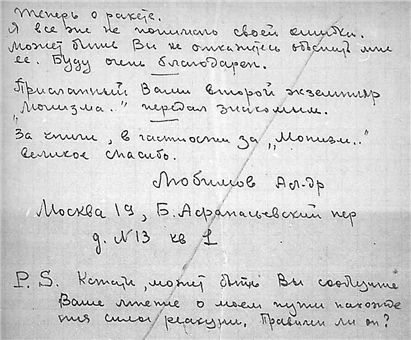 Теперь о ракете.
Я все же не понимаю своей ошибки.
Может быть Вы не откажетесь объяснить мне
ее. Буду очень благодарен.
Присланный Вами второй экземпляр
„Монизма.." передал знакомым.
За книги, в частности за „Монизм.."
великое спасибо.
Любимов Ал-др
Москва 19, Б. Афанасьевский пер
д. N13 кв 1
P.S. Кстати, может быть Вы сообщите
Ваше мнение о моем пути нахожде
ния силы реакции. Правилен ли он?